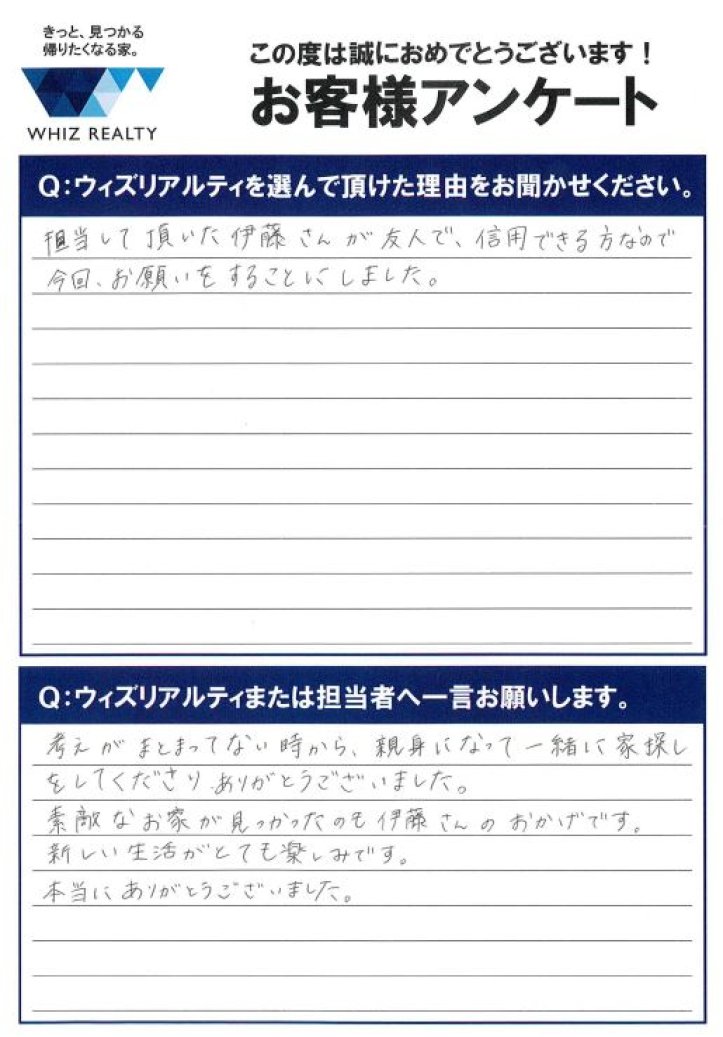 きっと、見つかる
帰りたくなる家。
WHIZ REALTY
この度は誠におめでとうございます！
お客様アンケート
Q：ウィズリアルティを選んで頂けた理由をお聞かせください。
担当して頂いた伊藤さんが友人で、信用できる方なので
今回、お願いをすることにしました。
Q：ウィズリアルティまたは担当者へ一言お願いします。
考えがまとまってない時から、親身になって一緒に家探し
をしてくださりありがとうございました。
素敵なお家が見つかったのも伊藤さんのおかげです。
新しい生活がとても楽しみです。
本当にありがとうございました。